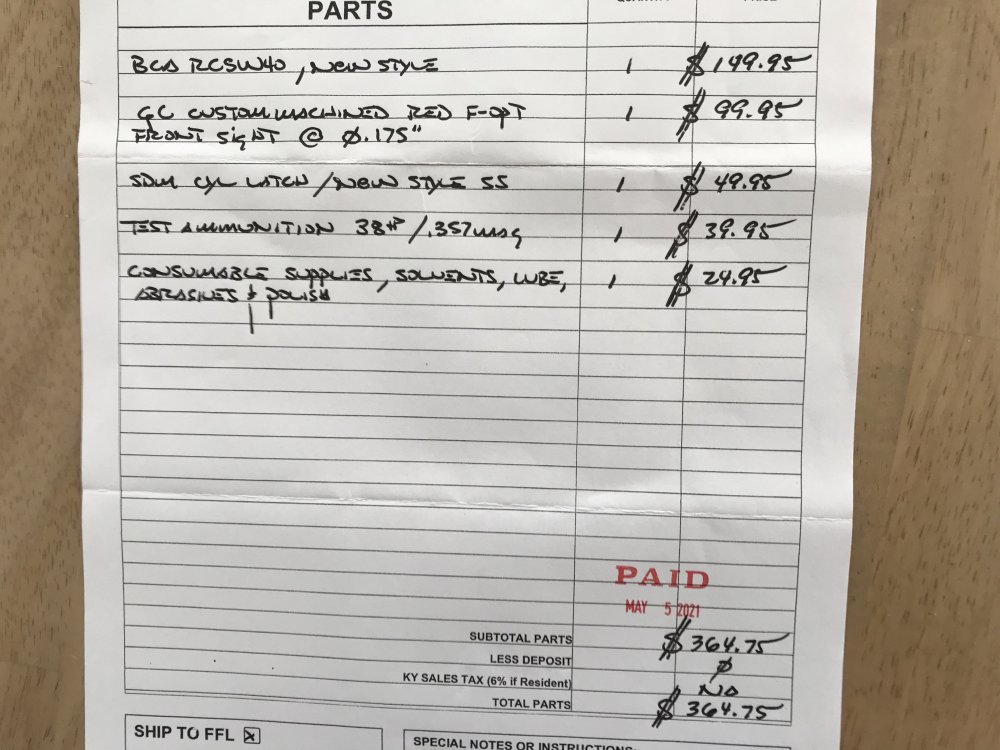 PARTS
BCA RCSW40, NEW STYLE 1 $149.95
GC CUSTOM MACHINED RED F-OPT 1 $99.95
FRONT SIGHT @ Ø.175"
SDM CYL LATCH / NEW STYLE SS 1 $49.95
TEST AMMUNITION 38+P /.357 MAG 1 $39.95
CONSUMABLE SUPPLIES, SOLVENTS, LUBE, 1 $24.95
ABRASIVES & POLISH
PAID
MAY 5 2021
SUBTOTAL PARTS $364.75
LESS DEPOSIT Ø
KY SALES TAX (6% if Resident) NA
TOTAL PARTS $364.75
SHIP TO FFL
SPECIAL NOTES OR INSTRUCTIONS: